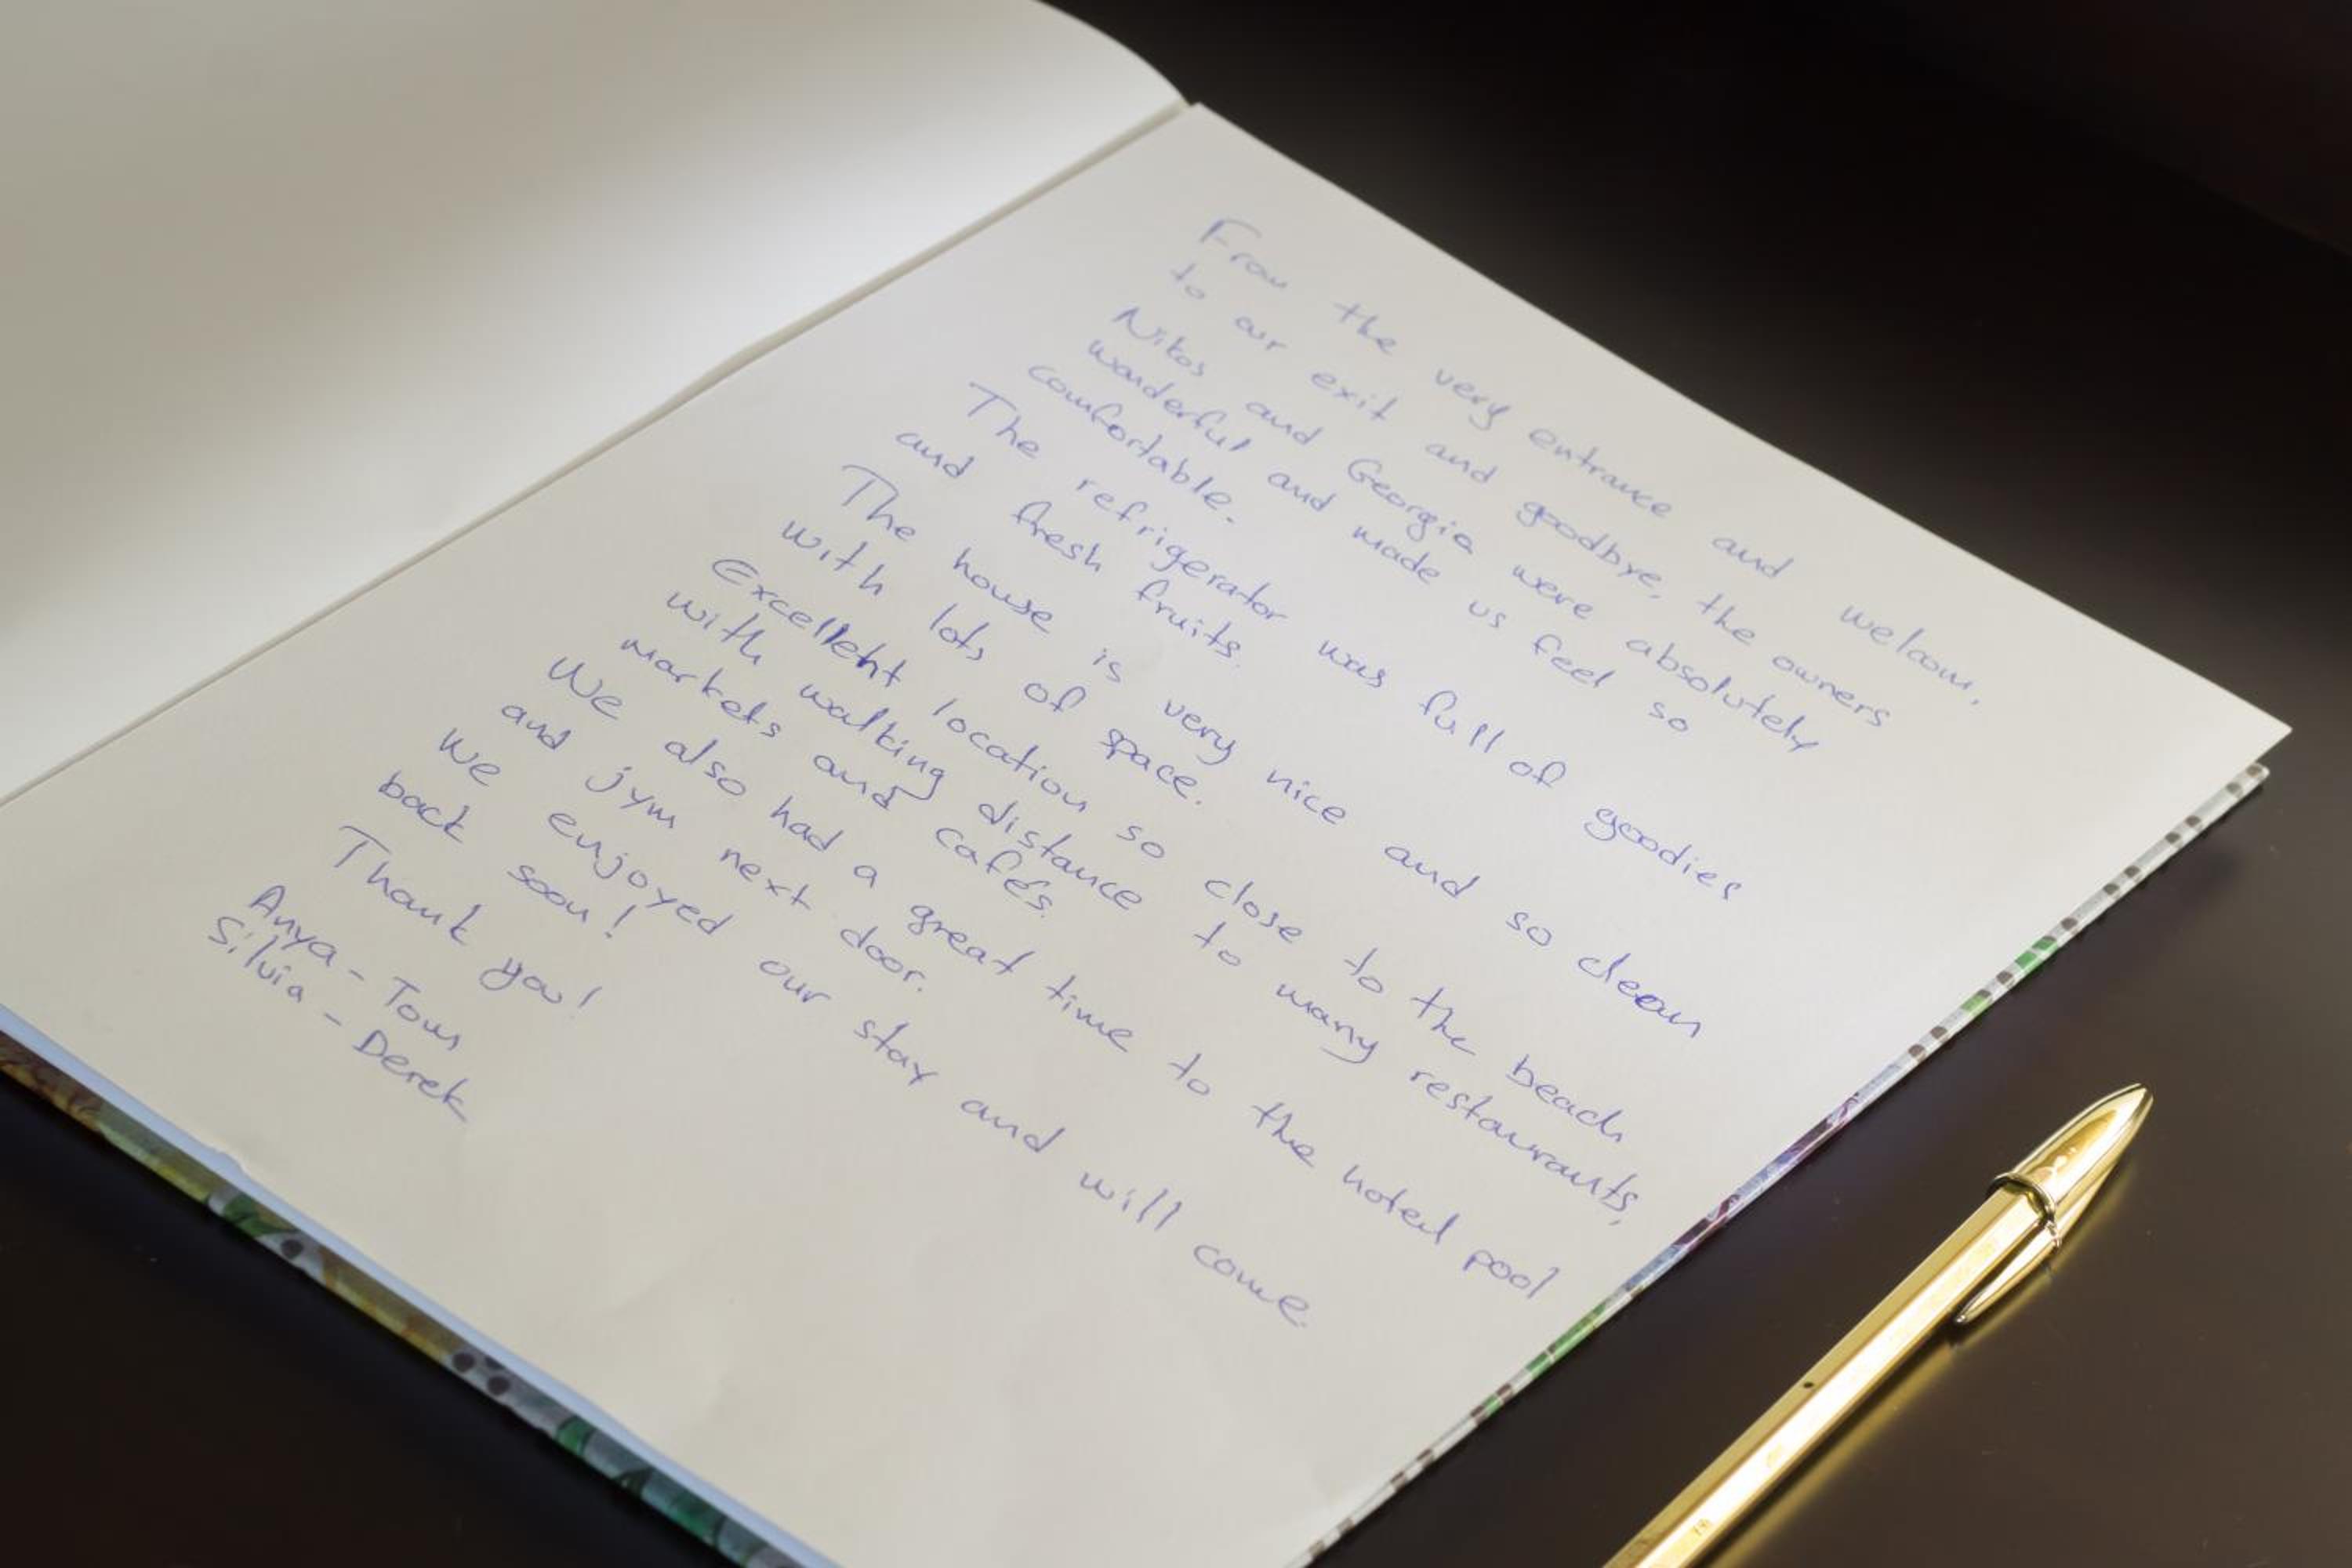 From the very entrance and welcom,
to our exit and goodbye, the owners
Nikos and Georgia were absolutely
wonderful and made us feel so
comfortable.
The refrigerator was full of goodies
and fresh fruits.
The house is very nice and so clean
with lots of space.
Excellent location so close to the beach
with walking distance to many restaurants,
markets and cafés.
We also had a great time to the hotel pool
and jym next door.
We enjoyed our stay and will come
back soon!
Thank you!
Anya - Tom
Silvia - Derek